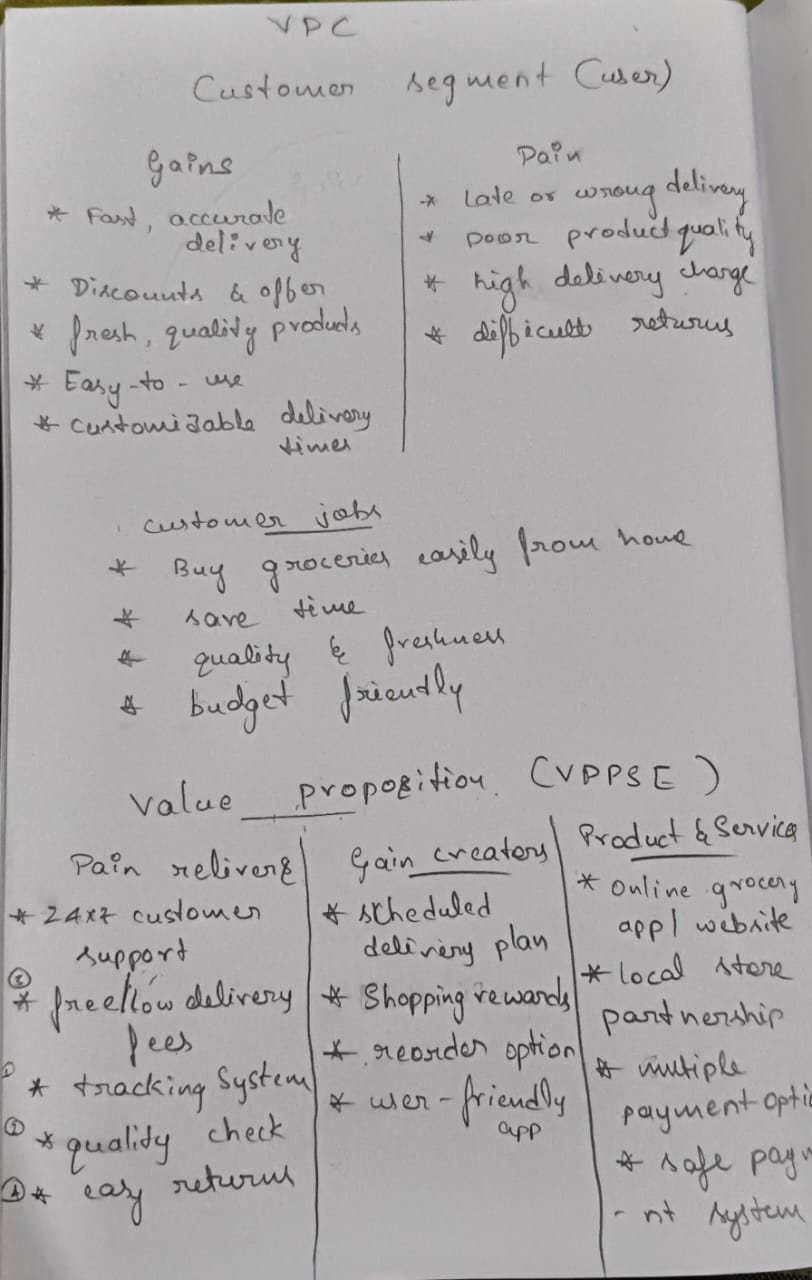 VPC
Customer segment (user)
Gains
* Fast, accurate
delivery
* Discounts & offer
* fresh, quality products
* Easy-to-use
* customizable delivery
times
Pain
* Late or wrong delivery
* poor product quality
* high delivery charge
* difficult returns
customer jobs
* Buy groceries easily from home
* save time
* quality & freshness
* budget friendly
Value proposition. (VPPSE)
Pain relivers
* 24x7 customer
support
* free/low delivery
fees
① * tracking System
③ * quality check
④ * easy returns
Gain creators
* scheduled
delivery plan
* Shopping rewards
* reorder option
* user-friendly
app
Product & Service
* online grocery
app/ website
* local store
partnership
* multiple
payment opti
* safe paym
- nt system